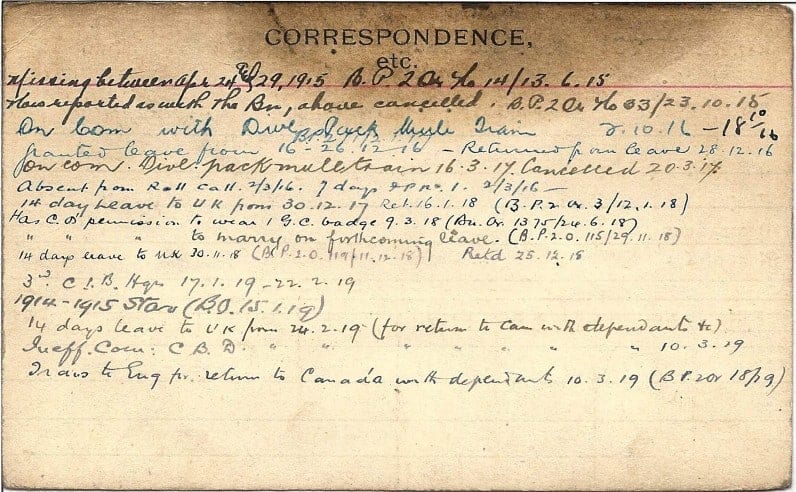 CORRESPONDENCE,
etc.
Missing between Apr 24th & 29, 1915 B.P. 2 Or No 14/13.6.15
Now reported as with the Bn, above cancelled. B.P. 2 Or No 33/23.10.15
On Com with Divl Pack Mule Train 2.10.16 - 18/10/16
granted leave from 16-26.12.16 - Returned from leave 28.12.16
On com. Divl. pack mule train 16.3.17. Cancelled 20.3.17.
Absent from Roll call. 2/3/16. 7 days F.P. No. 1. 2/3/16 -
14 day Leave to U K from 30.12.17 Ret. 16.1.18 (B.P. 2 Or. 3/12.1.18)
Has C.O's permission to wear 1 G.C. badge 9.3.18 (Bn. Or. 1375/24.6.18)
" " " to marry on forthcoming leave. (B.P.2.O. 115/29.11.18)
14 days leave to UK 30.11.18 (B.P.2.O. 119/11.12.18) Retd 25.12.18
3rd C.I.B. Hqrs 17.1.19 - 22.2.19
1914-1915 Star (B.O. 15.1.19)
14 days leave to U K from 24.2.19 (for return to Can with dependants &c)
Ineff. Com: C B D. " " " " " " " 10.3.19
Trans to Eng for return to Canada with dependants 10.3.19 (B P 2 Or 18/19)